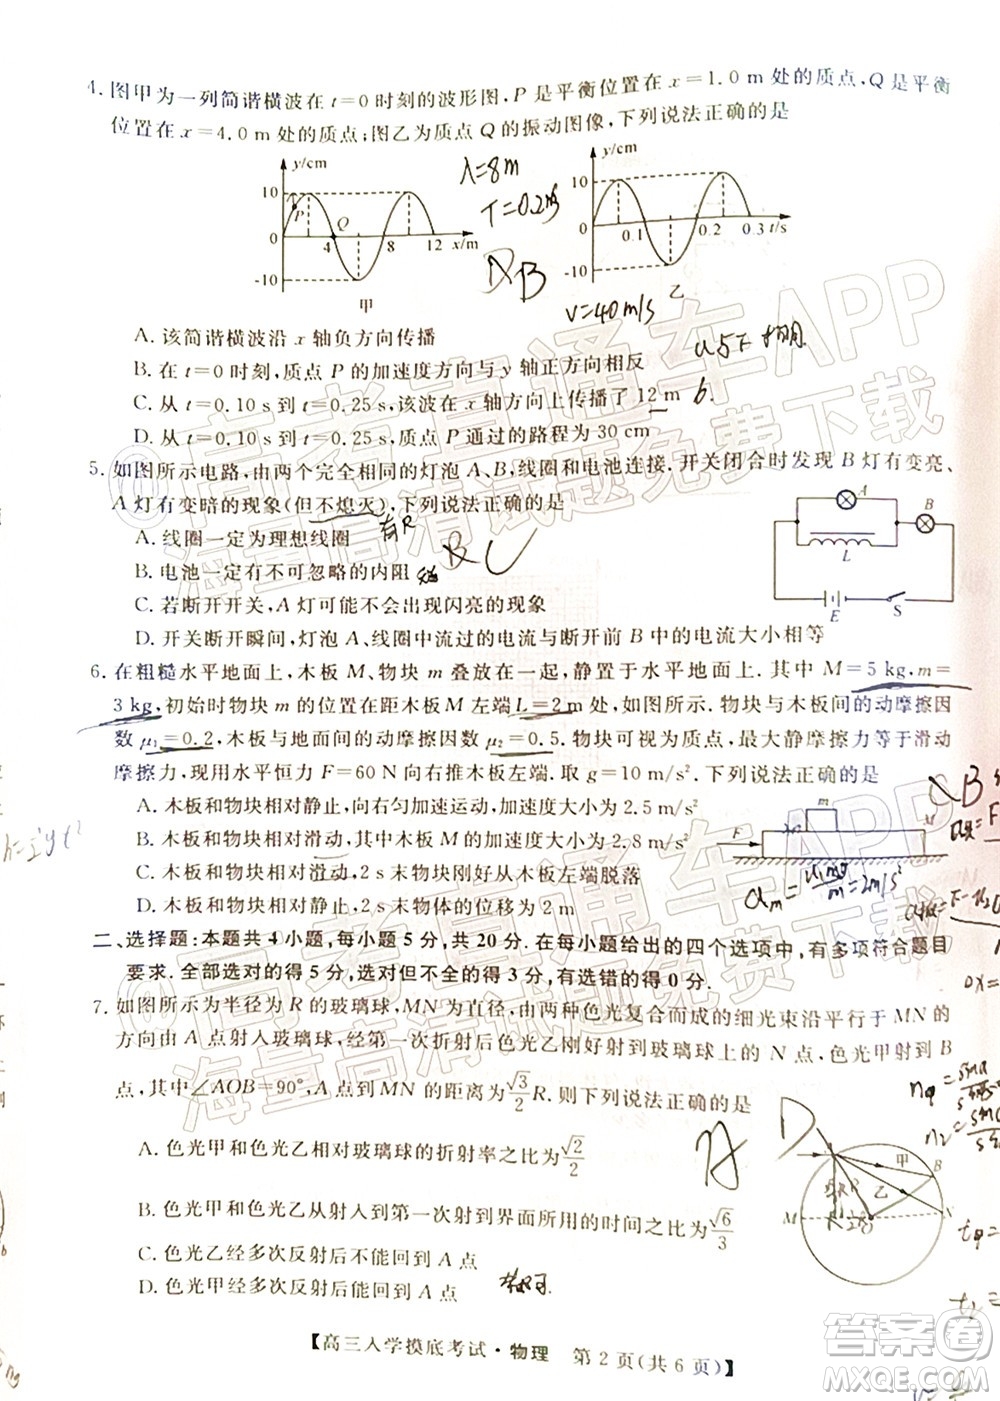 4. 图甲为一列简谐横波在 t=0 时刻的波形图, P 是平衡位置在 x=1.0 m 处的质点, Q 是平衡
位置在 x=4.0 m 处的质点;图乙为质点 Q 的振动图像,下列说法正确的是
y/cm
10
P
Q
0
4
8
12
x/m
-10
甲
λ=8m
T=0.2m/s
B
y/cm
10
0
0.1
0.2
0.3
t/s
-10
乙
v=40m/s
A. 该简谐横波沿 x 轴负方向传播
B. 在 t=0 时刻,质点 P 的加速度方向与 y 轴正方向相反
C. 从 t=0.10 s 到 t=0.25 s,该波在 x 轴方向上传播了 12 m
6.
D. 从 t=0.10 s 到 t=0.25 s,质点 P 通过的路程为 30 cm
5. 如图所示电路,由两个完全相同的灯泡 A、B,线圈和电池连接.开关闭合时发现 B 灯有变亮、
A 灯有变暗的现象(但不熄灭),下列说法正确的是
A. 线圈一定为理想线圈
有R
B. 电池一定有不可忽略的内阻
C. 若断开开关,A 灯可能不会出现闪亮的现象
D. 开关断开瞬间,灯泡 A、线圈中流过的电流与断开前 B 中的电流大小相等
A
B
L
E
S
6. 在粗糙水平地面上,木板 M、物块 m 叠放在一起,静置于水平地面上.其中 M=5 kg,m=
3 kg,初始时物块 m 的位置在距木板 M 左端 L=2 m 处,如图所示.物块与木板间的动摩擦因
数 μ₁=0.2,木板与地面间的动摩擦因数 μ₂=0.5.物块可视为质点,最大静摩擦力等于滑动
摩擦力,现用水平恒力 F=60 N 向右推木板左端.取 g=10 m/s².下列说法正确的是
A. 木板和物块相对静止,向右匀加速运动,加速度为 2.5 m/s²
B. 木板和物块相对滑动,其中木板 M 的加速度大小为 2.8 m/s²
C. 木板和物块相对滑动,2 s 末物块刚好从木板左端脱落
D. 木板和物块相对静止,2 s 末物体的位移为 2 m
F
m
M
B
二、选择题:本题共 4 小题,每小题 5 分,共 20 分.在每小题给出的四个选项中,有多项符合题目
要求.全部选对的得 5 分,选对但不全的得 3 分,有选错的得 0 分.
7. 如图所示为半径为 R 的玻璃球,MN 为直径,由两种色光复合而成的细光束沿平行于 MN 的
方向由 A 点射入玻璃球,经第一次折射后色光乙刚好射到玻璃球上的 N 点,色光甲射到 B
点,其中∠AOB=90°,A 点到 MN 的距离为 √3/2 R.则下列说法正确的是
A. 色光甲和色光乙相对玻璃球的折射率之比为 √2/2
B. 色光甲和色光乙从射入到第一次射到界面所用的时间之比为 √6/3
C. 色光乙经多次反射后不能回到 A 点
D. 色光甲经多次反射后不能回到 A 点
D
甲
乙
B
M
N
【高三入学摸底考试·物理 第 2 页(共 6 页)】
@高考直通车APP
海量高清试题免费下载
@高考直通车APP
海量高清试题免费下载
答案圈
MXQE.COM